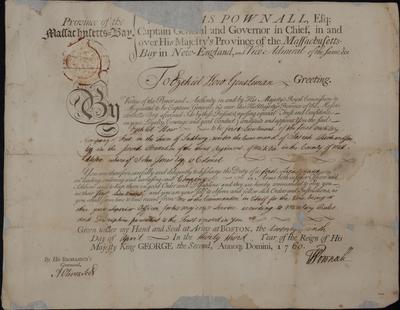 Province of the
Massachusetts-Bay.
IS POWNALL, Esq;
Captain General and Governor in Chief, in and
over His Majesty's Province of the Massachusetts-
Bay in New-England, and Vice Admiral of the same, &c.
To Ezekiel How Gentleman Greeting.
BY Virtue of the Power and Authority, in and by His Majesty's Royal Commission to
Me granted to be Captain General, &c. over this His Majesty's Province of the Massachusetts-Bay aforesaid; I do by these Presents (reposing especial Trust and Confidence in
your Loyalty, Courage and good Conduct) constitute and appoint You the said
Ezekiel How to be first Lieutenant of the first military
Company in the Town of Sudbury under the command of
Esq in the Regiment of Militia in the County of Middlesex
whereof John Jones Esq is Colonel
You are therefore carefully and diligently to discharge the Duty of a first Lieutenant
in leading, ordering and exercising said Company in Arms, both inferior Officers and
Soldiers; and to keep them in good Order and Discipline; and they are hereby commanded to obey you
as their first Lieutenant and you are yourself to observe and follow such Orders and Instructions, as
you shall from time to time receive from Me or the Commander in Chief for the Time being or
other your superior Officers for His Majesty's Service, according to Military Rules
and Discipline, pursuant to the Trust reposed in you.
Given under my Hand and Seal at Arms at BOSTON, the
Day of April In the thirty third Year of the Reign of His
Majesty King GEORGE the Second, Annoq; Domini, 1760.
By His Excellency's
Command,
T Pownall